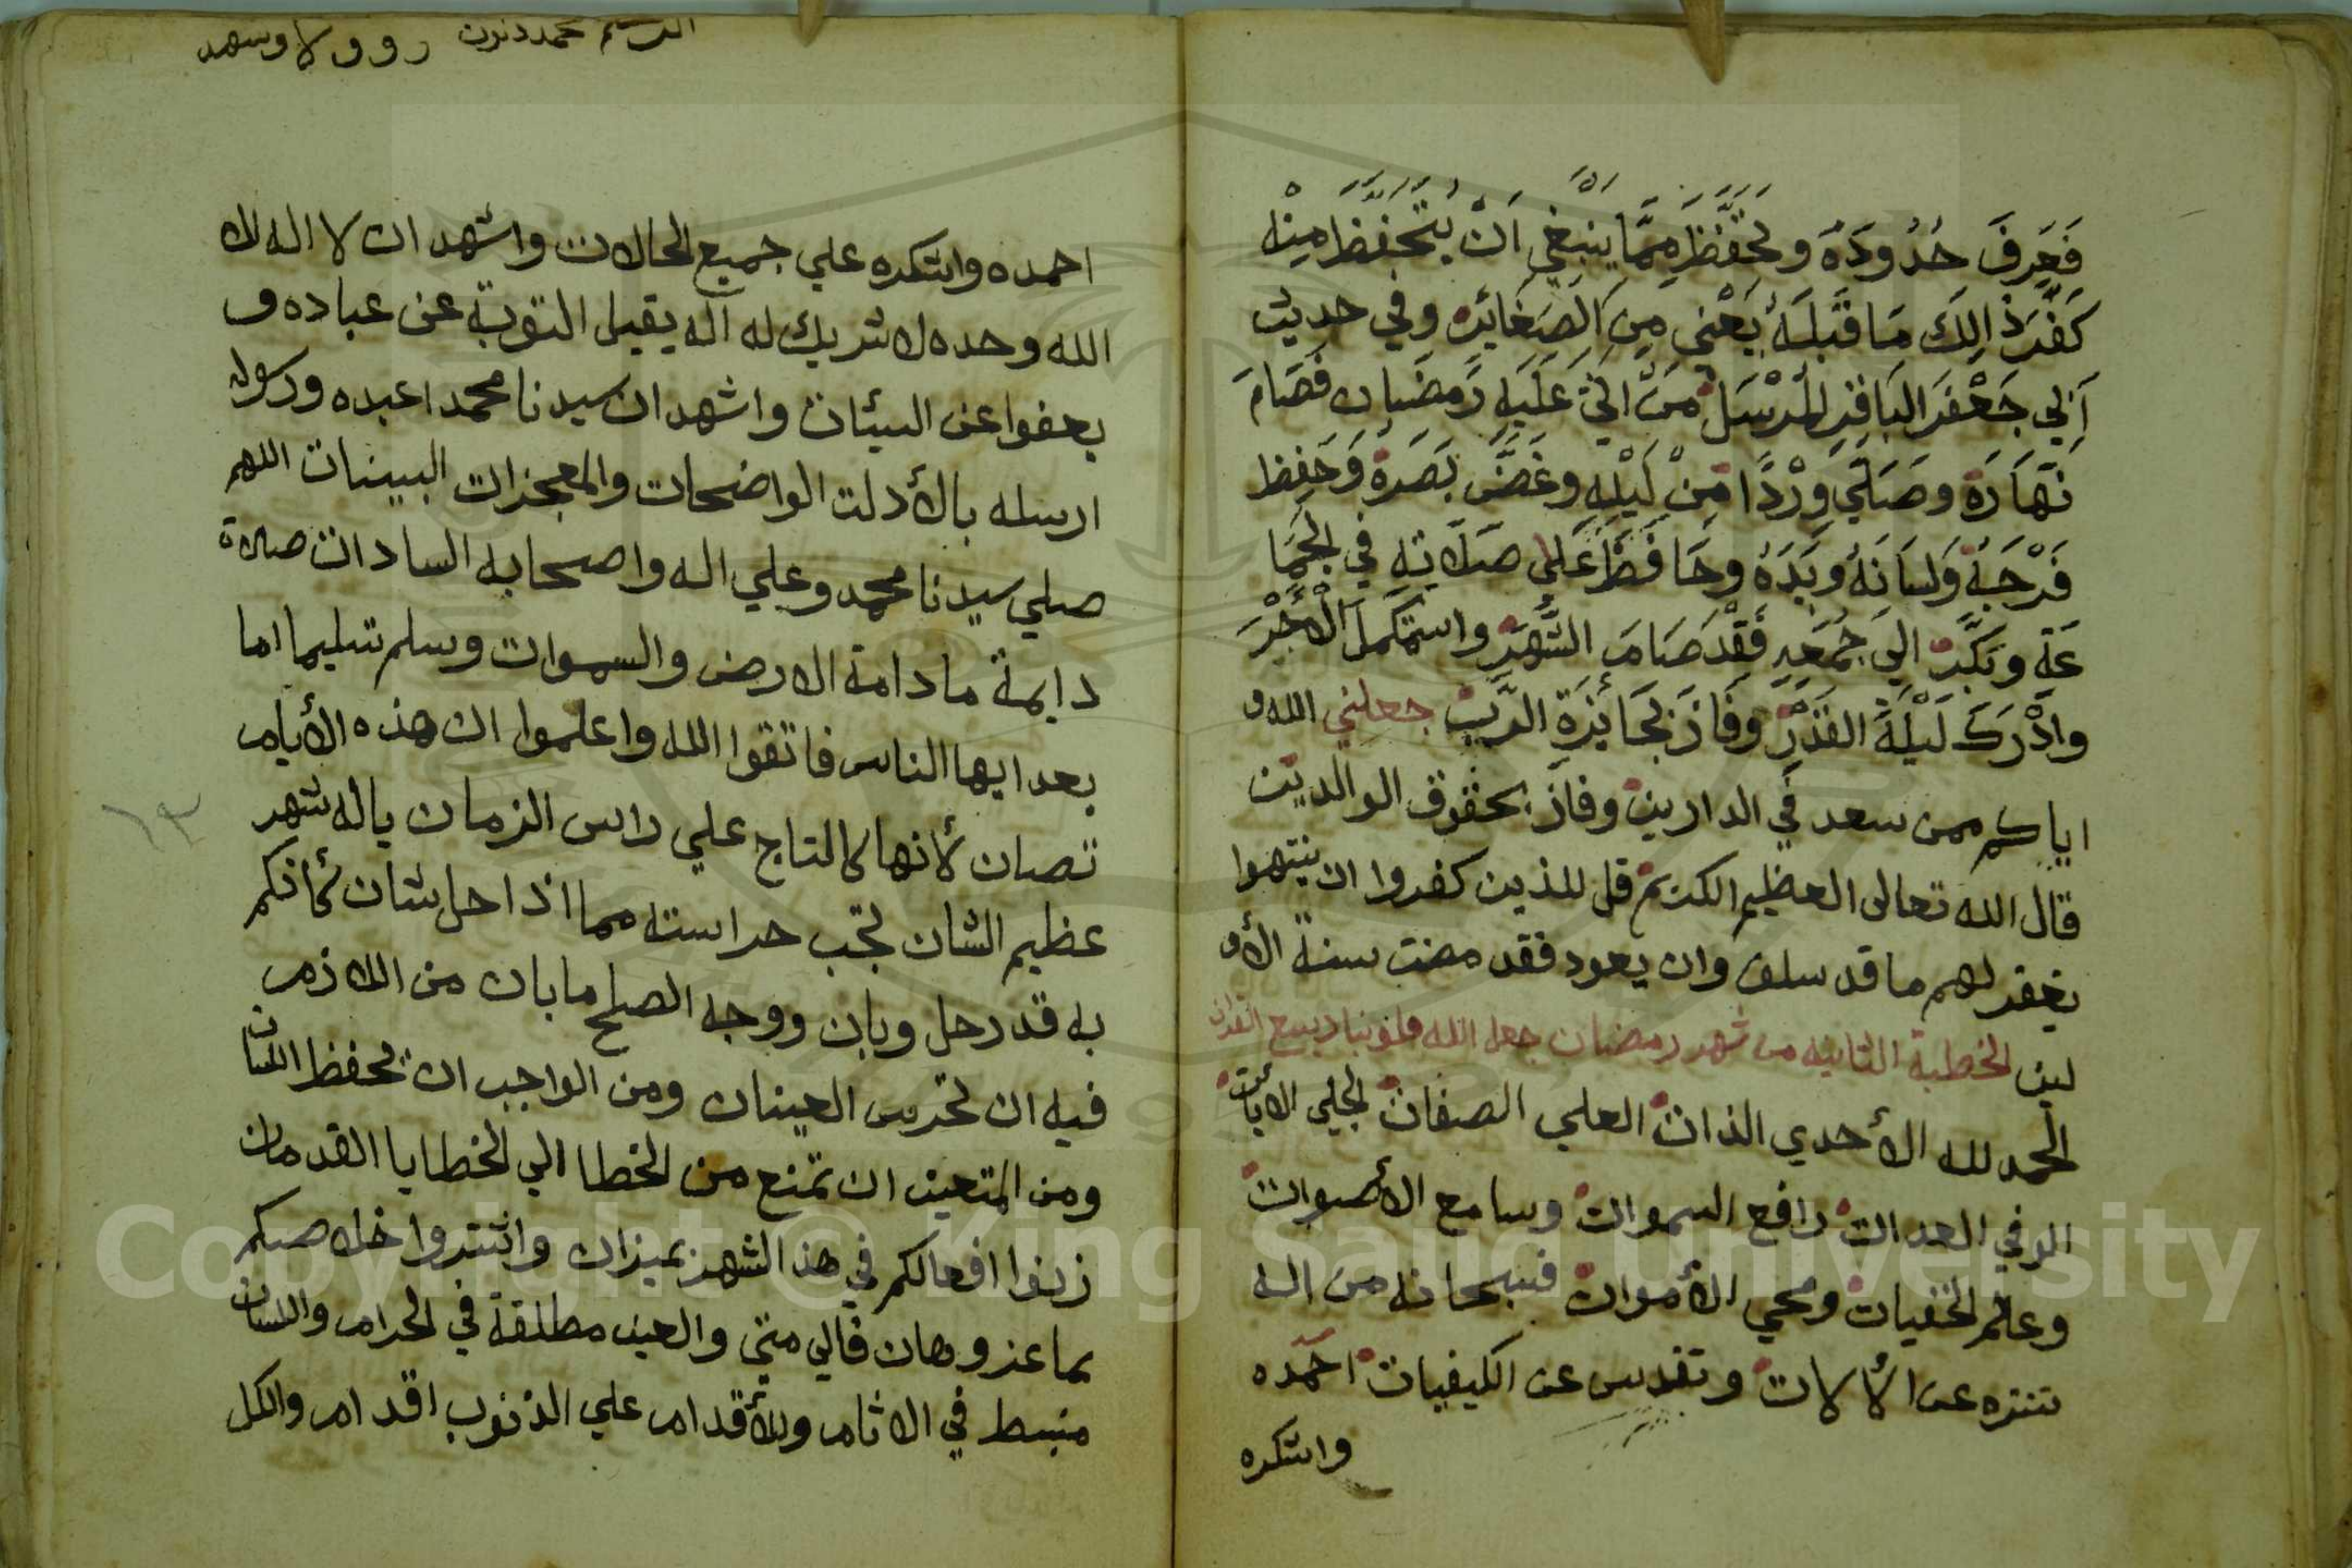 فَعَرِفَ حُدُودَهُ وتَحَفَّظَ مِمَّا يَنْبَغِي اَنْ يُتَحَفَّظَ مِنْهُ
كَفَّرَ ذَالِكَ مَا قَبْلَهُ يَعْنِي مِنَ الصَغَائِرِ وفي حديث
اَبِي جَعْفَرَ البَاقِرِ المُرْسَل مَنْ اتي عَلَيهِ رَمضَان فَصَامَ
نَهَارَهُ وصَلَّي وِرْدًا مِنْ لَيْلِهِ وغَضَّ بَصَرَهُ وَحَفِظ
فَرْجَهُ وَلسَانَهُ ويَدَهُ وحَافَظَ عَلي صَلَاتِهِ فِي الجَمَا
عَةِ وبَكَّرَ اليَ جُمَعِهِ فَقَدْ صَامَ الشَّهْرَ واسْتَكمَلَ الْأَجْرَ
وادْرَكَ لَيْلَةَ القَدْرِ وفَازَ بجَائِزَةِ الرَبّ جعلني الله و
اياكم ممن سعد في الدارين وفاز بحقوق الوالدين
قال الله تعالى العظيم الكريم قل للذين كفروا ان ينتهوا
يغفر لهم ما قد سلف وان يعود فقد مضت سنة الأو
لين الخطبة الثانيه من شهر رمضان جعل الله قلوبنا ربيع القران
الحمد لله الأحدي الذات العلي الصفات الجلي الايات
الوفي العدات رافع السموات وسامع الأصوات
وعالم الخفيات ومحي الأموات فسبحانه من اله
تنزه عن الألات وتقدس عن الكيفيات احمده
واشكره
محمد
احمده واشكره علي جميع الحالات واشهد ان لا اله الا
الله وحده لا شريك له اله يقبل التوبة عن عباده و
يعفوا عن السيئات واشهد ان سيدنا محمدا عبده ورسوله
ارسله بالأدلت الواضحات والمعجزات البينات اللهم
صلي سيدنا محمد وعلي اله واصحابه السادات صلاة
دايمة مادامة الارض والسموات وسلم تسليما اما
بعد ايها الناس فاتقوا الله واعلموا ان هذه الأيام
تصان لأنها كالتاج علي راس الزمان ياله شهر
عظيم الشان تجب حراسته مما اذا حل شان كأنكم
به قد رحل وبان ووجه الصلح ما بان من اللازم
فيه ان تحرس العينان ومن الواجب ان تحفظ اللسان
ومن المتعين ان تمنع من الخطا الي الخطايا القدمان
زنوا افعالكم في هذ الشهر بميزان واشتروا خلاصكم
بما عز وهان فالي متي والعين مطلقة في الحرام واللسان
منبسط في الاثام وللأقدام علي الذنوب اقدام والكل
١٣
Copyright © King Saud University